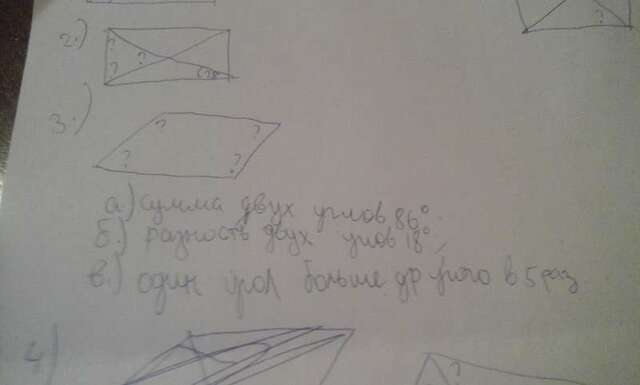 ?
2.)
?
?
?
3.)
?
?
?
?
а) сумма двух углов 86°.
б.) разность двух улов 18°,
в.) один угол больше другого в 5 раз
4)
?